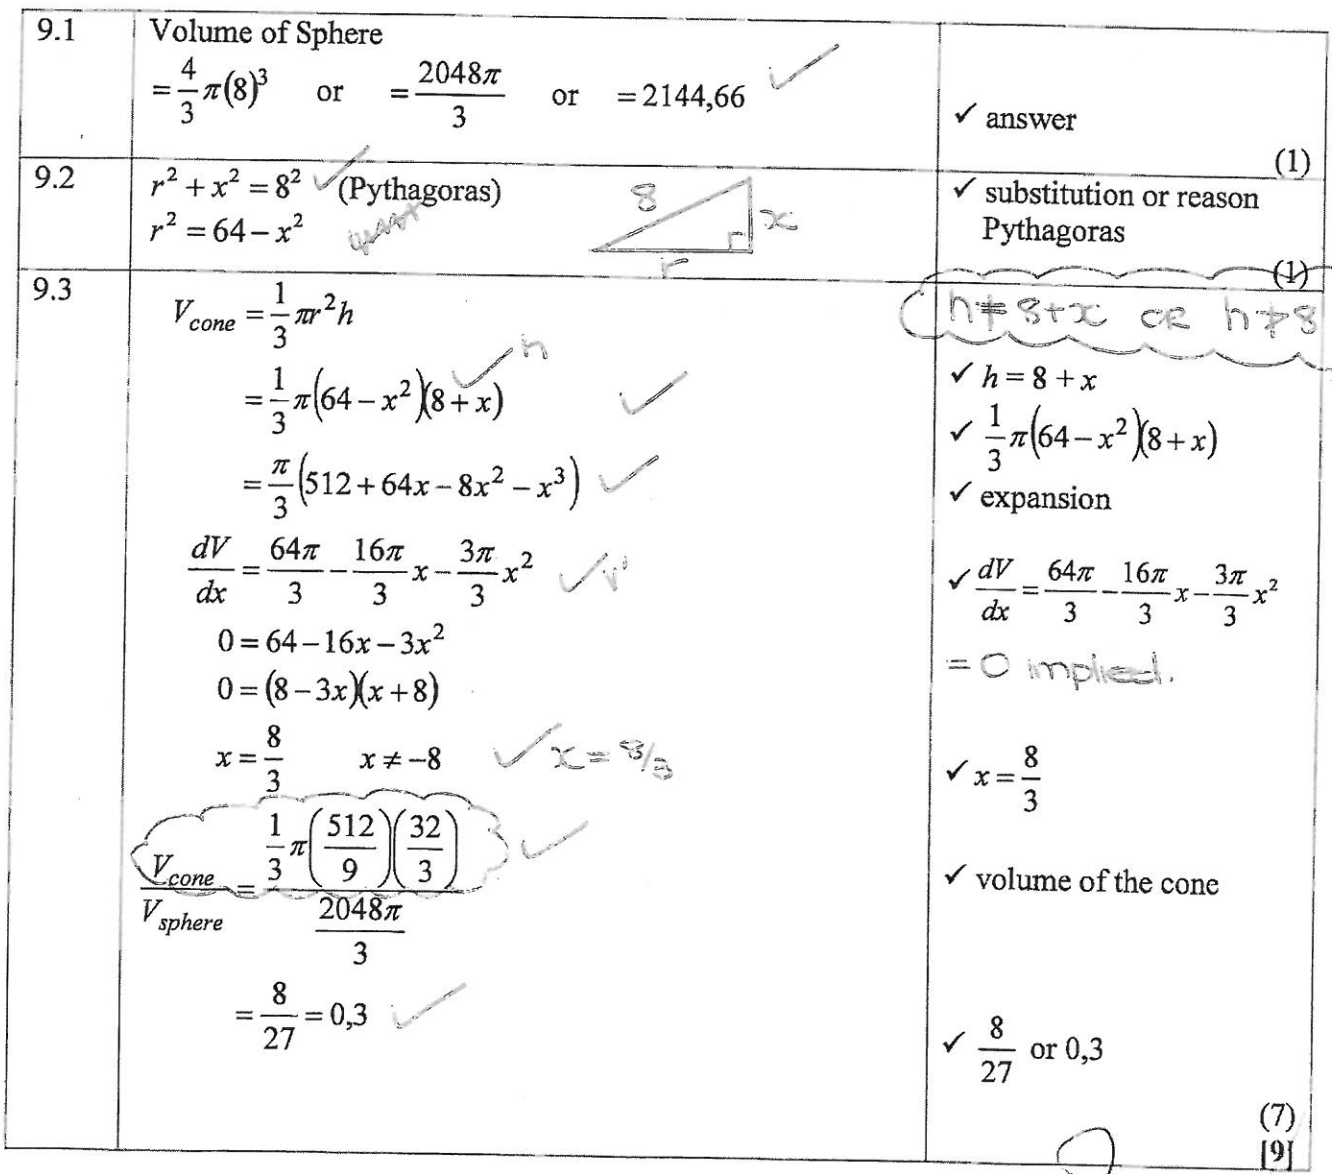 9.1
Volume of Sphere
= 4/3 π(8)³ or = 2048π/3 or = 2144,66 ✓
✓ answer
(1)
9.2
r² + x² = 8² ✓ (Pythagoras)
r² = 64 − x²
8
x
r
✓ substitution or reason
Pythagoras
(1)
9.3
V_cone = 1/3 πr²h
= 1/3 π(64 − x²)(8 + x) ✓ h ✓
= π/3 (512 + 64x − 8x² − x³) ✓
dV/dx = 64π/3 − 16π/3 x − 3π/3 x² ✓ V'
0 = 64 − 16x − 3x²
0 = (8 − 3x)(x + 8)
x = 8/3 x ≠ −8 ✓ x = 8/3
V_cone/V_sphere = 1/3 π(512/9)(32/3) / 2048π/3 ✓
= 8/27 = 0,3 ✓
h ≠ 8+x OR h ≠ 8
✓ h = 8 + x
✓ 1/3 π(64 − x²)(8 + x)
✓ expansion
✓ dV/dx = 64π/3 − 16π/3 x − 3π/3 x²
= 0 implied.
✓ x = 8/3
✓ volume of the cone
✓ 8/27 or 0,3
(7)
[9]